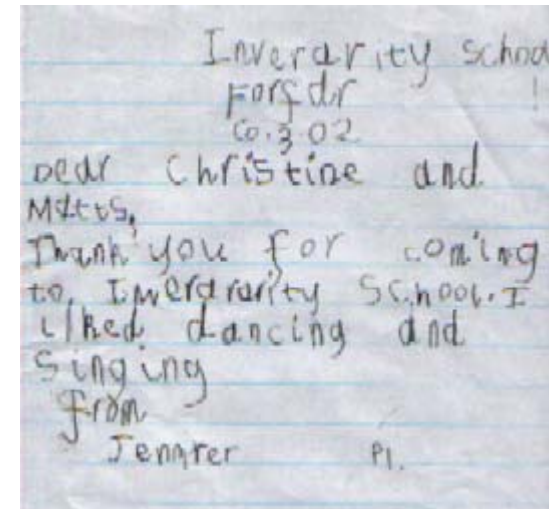 Inverarity School
Forfdr
6.3.02
Dear Christine and
Matts,
Thank you for coming
to Inverarity School. I
liked dancing and
Singing
from
P1.